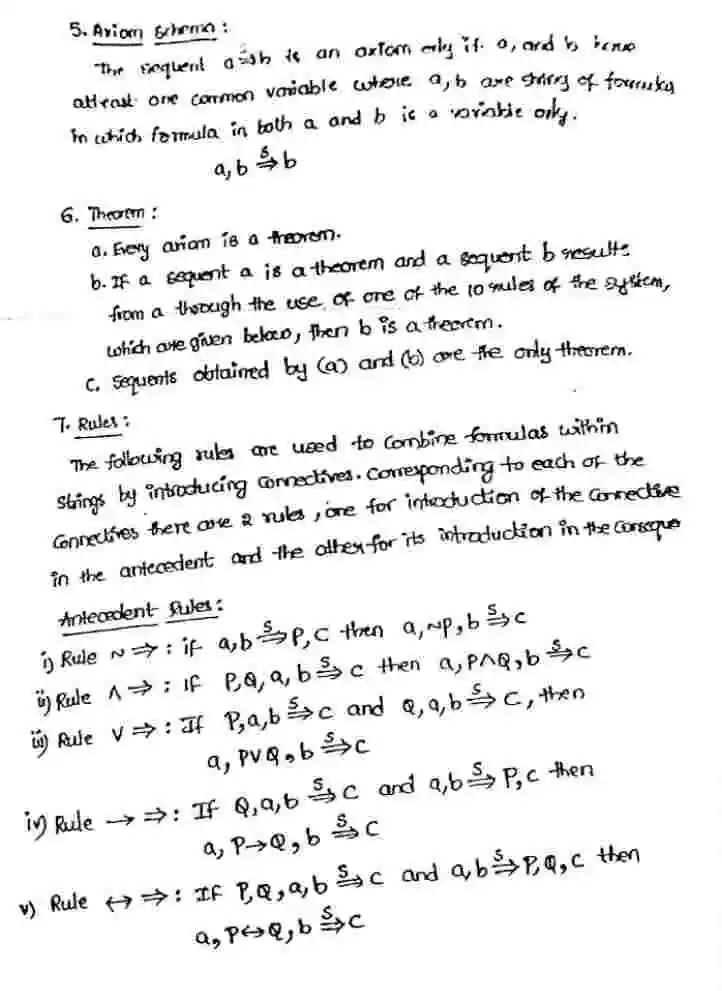 5. Axiom Schema :
The sequent a ⇒ˢ b is an axiom only if a, and b have
atleast one common variable where a, b are string of formulas
in which formula in both a and b is a variable only.
a, b ⇒ˢ b
6. Theorem :
a. Every axiom is a theorem.
b. If a sequent a is a theorem and a sequent b results
from a through the use of one of the 10 rules of the system,
which are given below, then b is a theorem.
c. Sequents obtained by (a) and (b) are the only theorem.
7. Rules :
The following rules are used to combine formulas within
strings by introducing connectives. Corresponding to each of the
connectives there are 2 rules, one for introduction of the connective
in the antecedent and the other for its introduction in the conseque
Antecedent Rules :
i) Rule ~ ⇒ : if a, b ⇒ˢ P, C then a, ~P, b ⇒ˢ C
ii) Rule ∧ ⇒ : If P, Q, a, b ⇒ˢ C then a, P∧Q, b ⇒ˢ C
iii) Rule ∨ ⇒ : If P, a, b ⇒ˢ C and Q, a, b ⇒ˢ C, then
a, P∨Q, b ⇒ˢ C
iv) Rule → ⇒ : If Q, a, b ⇒ˢ C and a, b ⇒ˢ P, C then
a, P→Q, b ⇒ˢ C
v) Rule ↔ ⇒ : If P, Q, a, b ⇒ˢ C and a, b ⇒ˢ P, Q, C then
a, P↔Q, b ⇒ˢ C